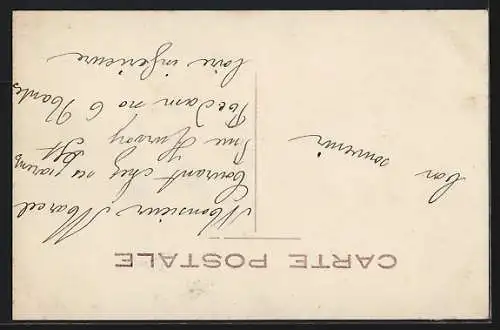 CARTE POSTALE
bon
souvenir
Monsieur Marcel
Courant chez ses parents
Rue
No 6 Nantes
loire inferieure